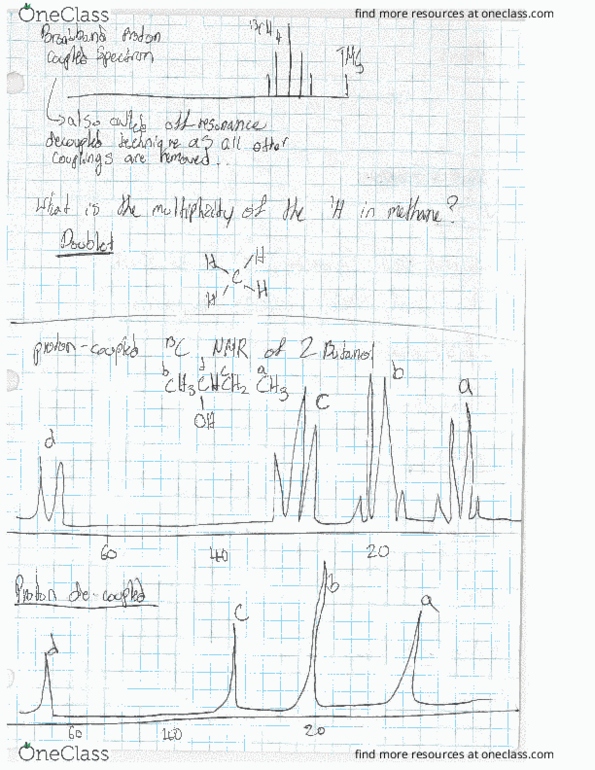 OneClass
find more resources at oneclass.com
Broadband Proton
Coupled Spectrum
¹³CH₄
TMS
↳ also called off resonance
decoupled technique as all other
couplings are removed..
What is the multiplicity of the ¹H in methane?
Doublet
H H
C
H H
proton-coupled ¹³C NMR of 2 Butanol
b d c a
CH₃CHCH₂CH₃
OH
d c b a
60 40 20
Proton de-coupled
d c b a
60 40 20
OneClass
find more resources at oneclass.com